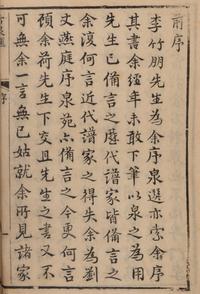 前序
李竹朋先生為余序泉選亦索余序
其書余經年未敢下筆以泉之為用
先生已備言之歷代譜家皆備言之
余復何言近代譜家之得失余為劉
丈燕庭序泉苑亦備言之今更何言
顧余荷先生下交且先生之書又不
可無余一言無已姑就余所見諸家
序